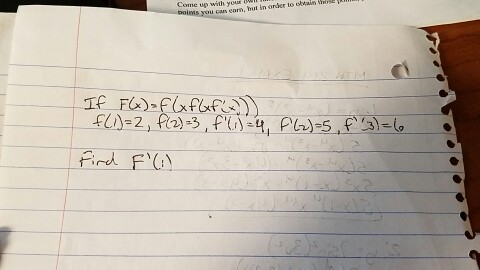 Come up with your own
points you can earn, but in order to obtain those points,
If F(x)=f(xf(xf'(x)))
f(1)=2, f(2)=3, f'(1)=4, f'(2)=5, f'(3)=6
Find F'(1)